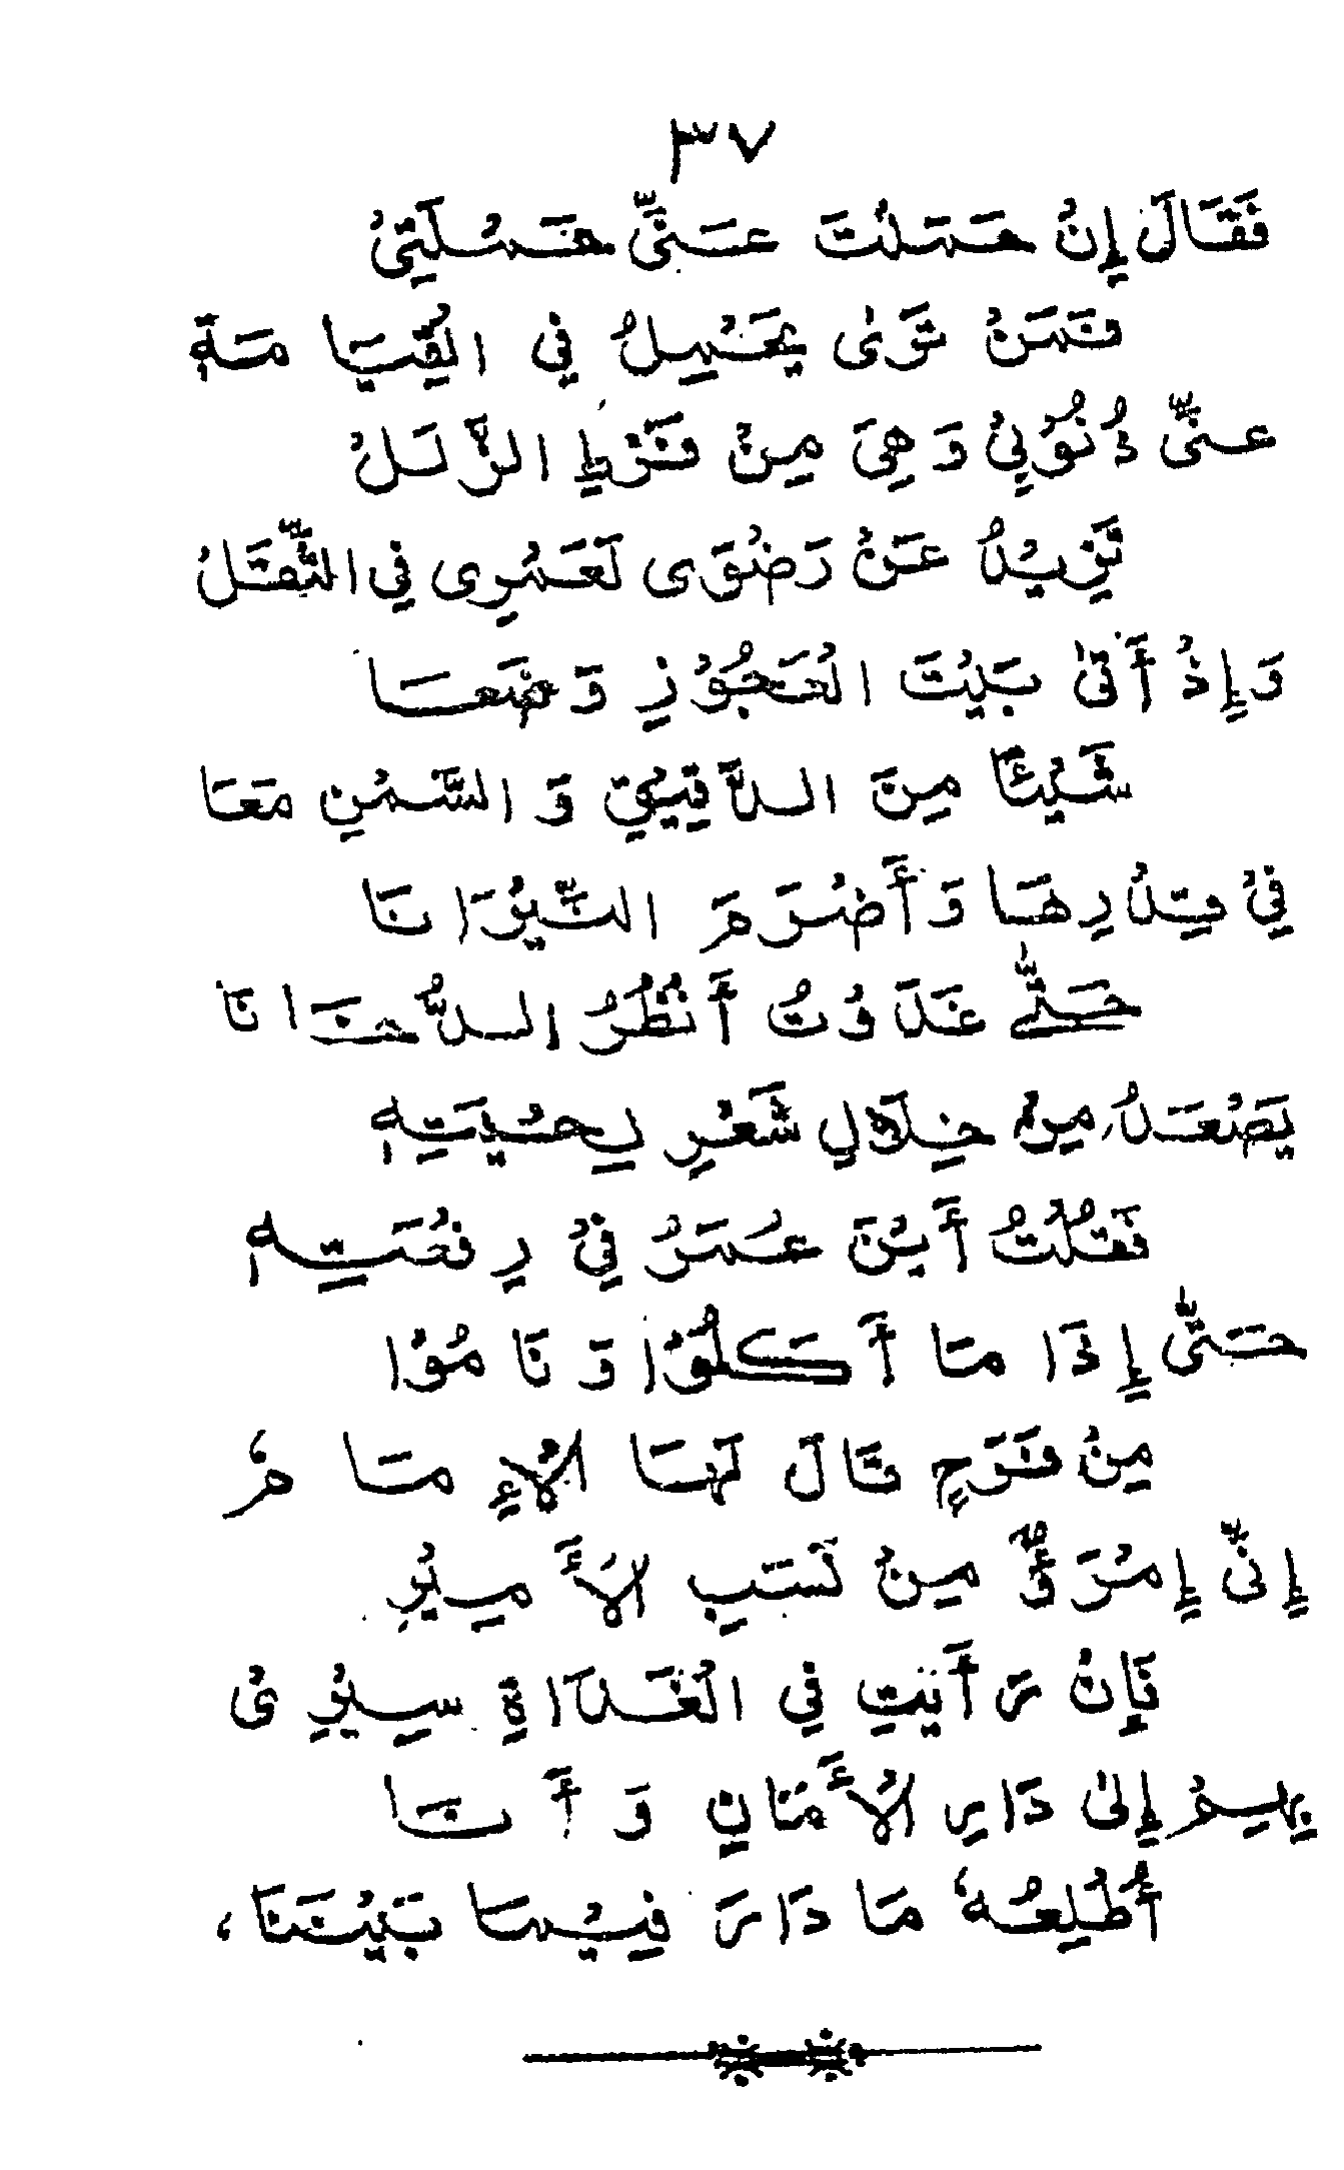 ٣٧
فَقَالَ إِنْ حَمَلْتَ عَنِّي حَمْلَتِيْ
فَمَنْ تَرٰى يَحْمِلُ فِي الْقِيَامَةِ
عَنِّي ذُنُوْبِيْ وَهِيَ مِنْ فَرْطِ الزَّلَلْ
تَزِيْدُ عَنْ رَضْوَى لَعَمْرِى فِي الثِّقَلْ
وَإِذْ أَتٰى بَيْتَ الْعَجُوْزِ وَضَعَا
شَيْئًا مِنَ الدَّقِيْقِ وَالسَّمْنِ مَعَا
فِيْ قِدْرِهَا وَأَضْرَمَ النِّيْرَانَا
حَتّٰى غَدَوْتُ أَنْظُرُ الدُّخَانَا
يَصْعَدُ مِنْ خِلَالِ شَعْرِ لِحْيَتِهِ
فَقُلْتُ أَيْنَ عُمَرُ فِيْ رِفْعَتِهِ
حَتّٰى إِذَا مَا أَكَلُوْا وَنَامُوْا
مِنْ فَرَحٍ قَالَ لَهَا الْإِمَامُ
إِنِّي إِمْرَؤٌ مِنْ نَسَبِ الْأَمِيْرِ
فَإِنْ رَأَيْتِ فِي الْغَدَاةِ سِيْرِيْ
بِهِمْ إِلٰى دَارِ الْأَمَانِ وَأَنَا
أُطْلِعُهُ مَا دَارَ فِيْمَا بَيْنَنَا،